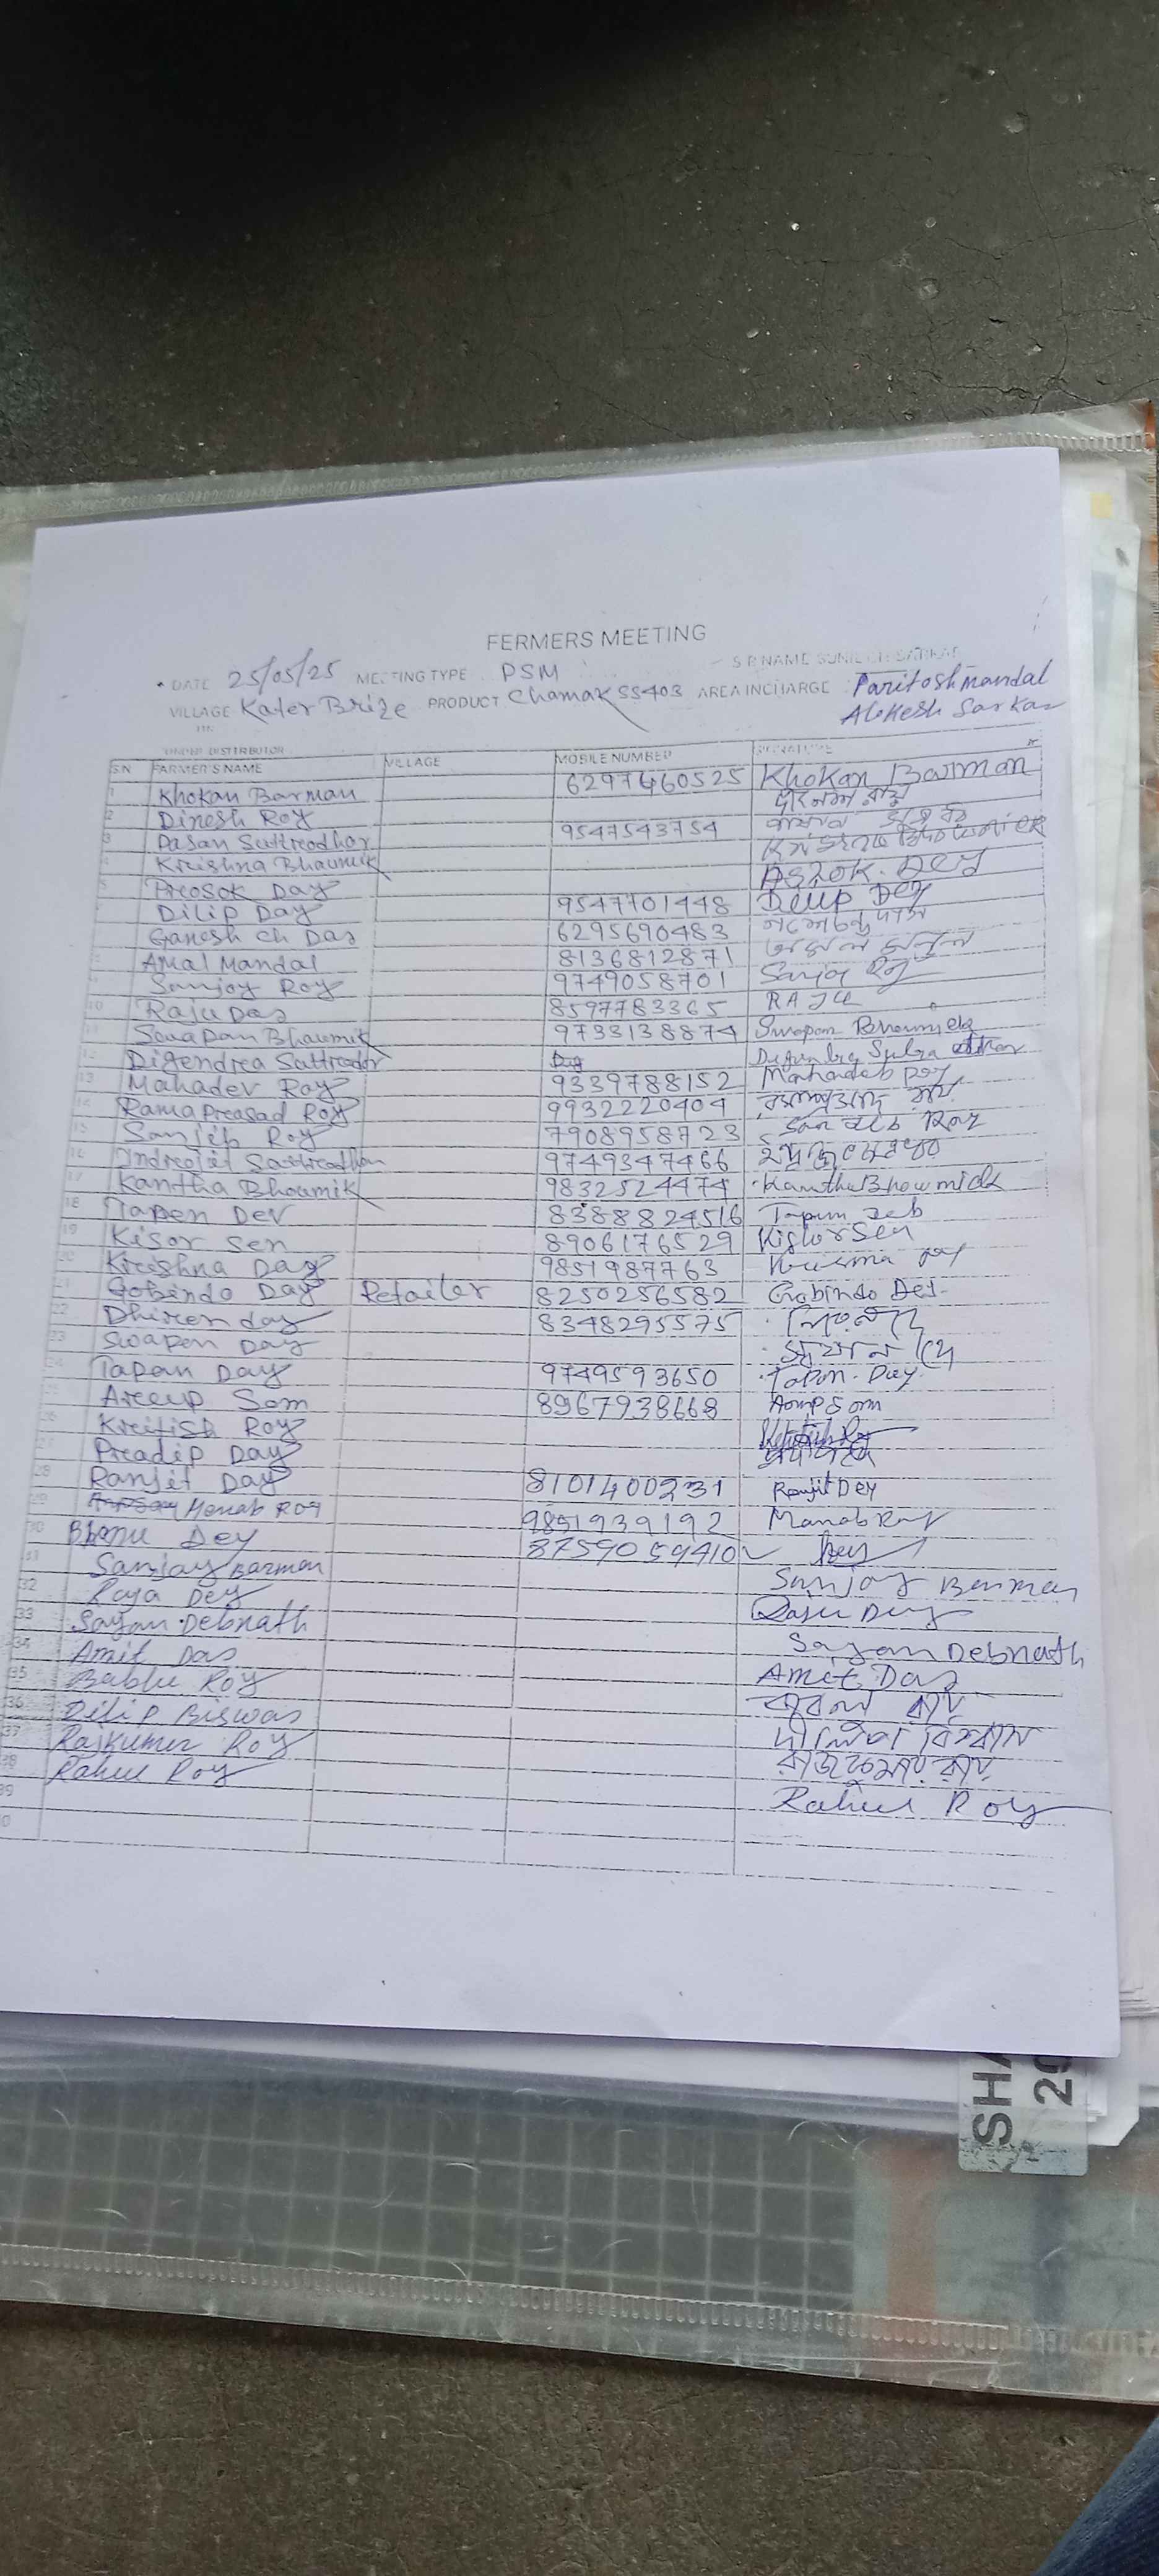 FERMERS MEETING
DATE 25/05/25 MEETING TYPE PSM S R NAME SUNIL CH SARKAR
VILLAGE Kater Brize PRODUCT Chamak SS403 AREA INCHARGE Paritosh mandal
Alokesh Sarkar
UNDER DISTRIBUTOR
SN FARMER'S NAME VILLAGE MOBILE NUMBER SIGNATURE
1 Khokan Barman 6297460525 Khokan Barman
2 Dinesh Roy দীনেশ রায়
3 Dasan Suttreodhar 9547543754
4 Kreishna Bhaumik
5 Preosok Day Ashok. Dey
Dilip Day 9547701448 Dilip Dey
Ganesh ch Das 6295690483 গনেশ চন্দ্র দাস
Amal Mandal 8136812871 অমল মন্ডল
Sanjoy Roy 9749058701 Sanjoy Roy
10 Raju Das 8597783365 RAJU
11 Swapan Bhaumik 9733138874 Swapan Bhowmick
12 Digendrea Suttreodor Day
13 Mahadev Roy 9339788152 Mahadeb Roy
14 Rama Preasad Roy 9932220404 রমাপ্রসাদ রায়
15 Sanjib Roy 7908958723 Roy
16 Indreojit Suttreodhar 9749347466
17 Kantha Bhoumik 9832524474 Kantha Bhowmick
18 Tapen Dev 8388824516 Tapan Deb
19 Kisor Sen 8906176529 Kishor Sen
20 Kreishna Day 9851987763
21 Gobindo Day Retailer 8250256582 Gobindo Dey
22 Dhiren day 8348295575
23 Swapan Day স্বপন দে
24 Tapan Day 9749593650 Tapan. Day
25 Areup Som 8967938668 Arup Som
26 Kreitish Roy
27 Preadip Day
28 Ranjit Day 8101400231 Ranjit Dey
29 Manab Roy 9851939192 Manab Roy
30 Bhanu Dey 8759059410 Dey
31 Sanjay Barman Sanjoy Barman
32 Raja Dey Dey
33 Sayan Debnath Sayan Debnath
34 Amit Das Amit Das
35 Bablu Roy বাবলা রায়
36 Dilip Biswas দীলিপ বিশ্বাস
37 Rajkumar Roy রাজকুমার রায়
38 Rahul Roy Rahul Roy
39
0
SHA
29